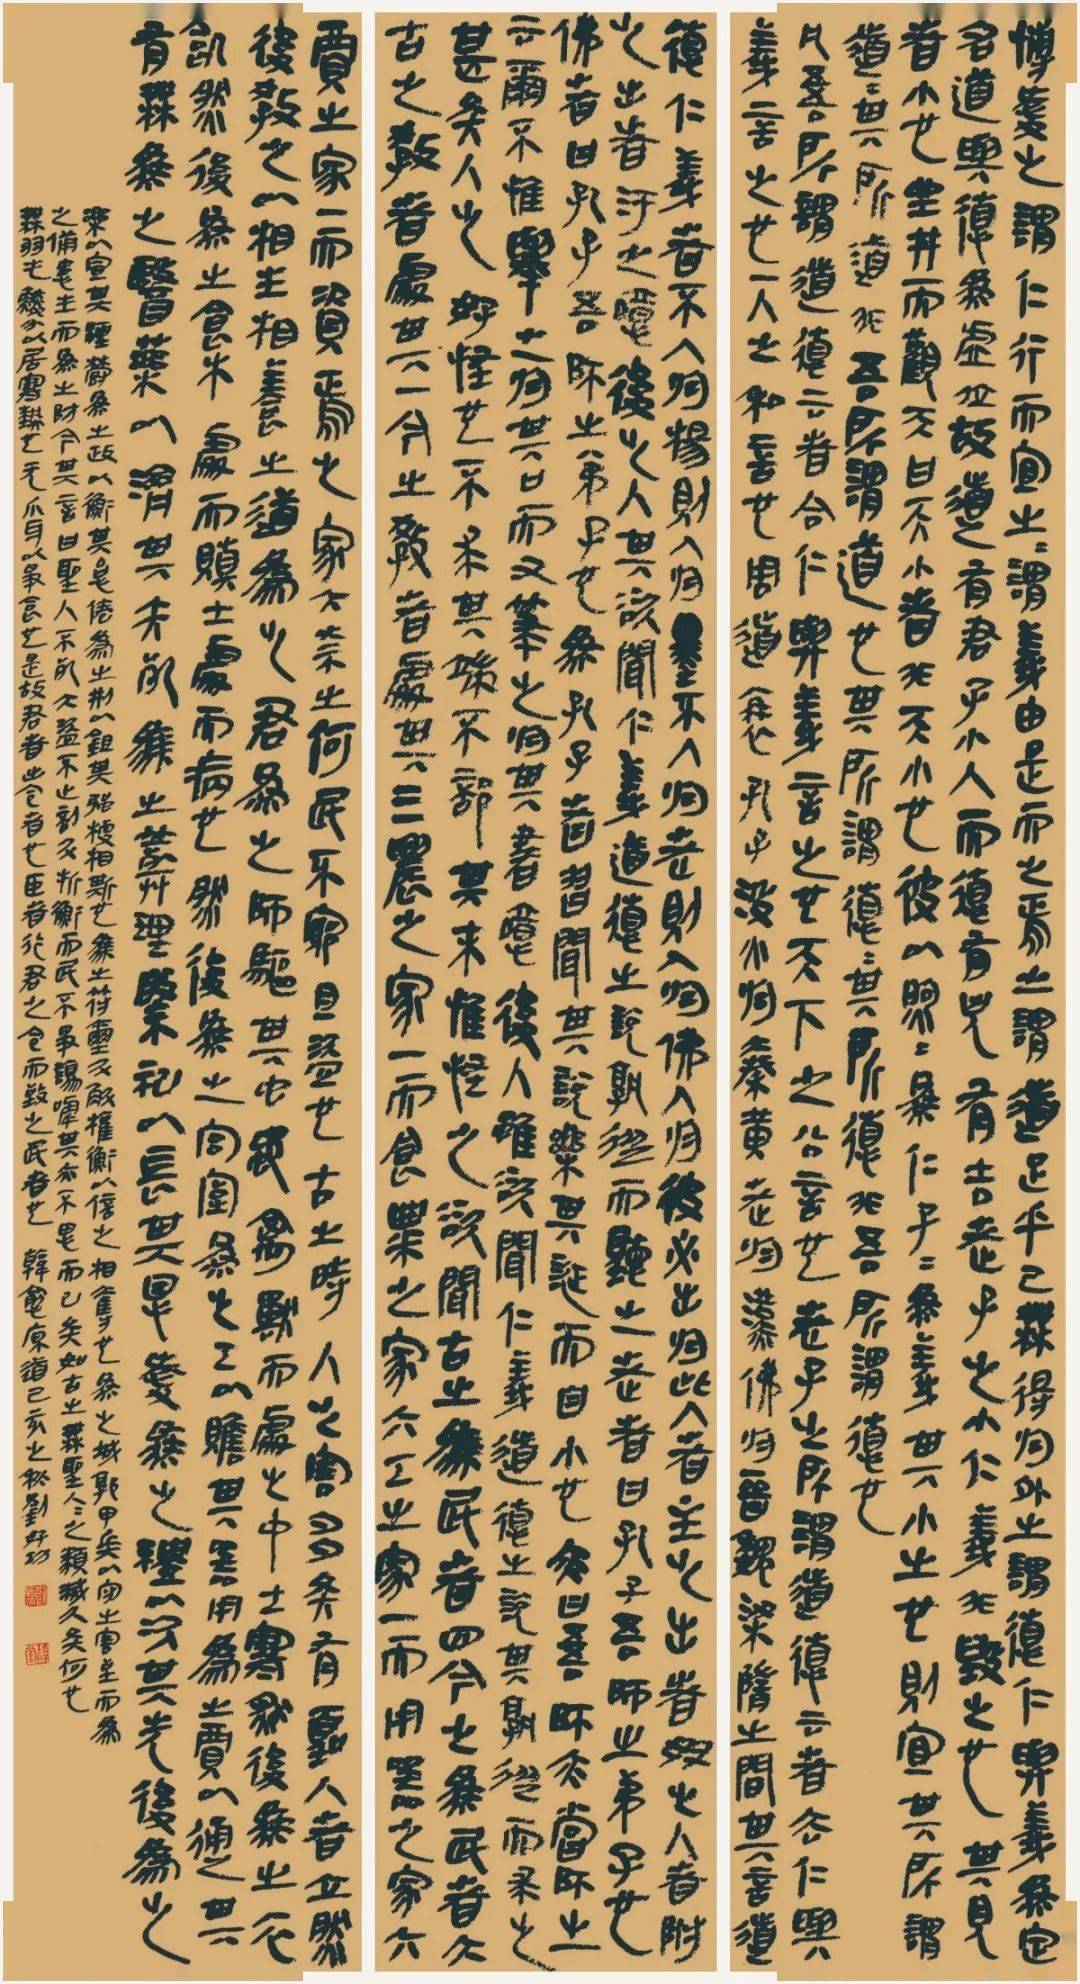 博愛之謂仁行而宜之之謂義由是而之焉之謂道足乎己無待於外之謂德仁與義爲定
名道與德爲虛位故道有君子小人而德有凶有吉老子之小仁義非毀之也其見
者小也坐井而觀天曰天小者非天小也彼以煦煦爲仁孑孑爲義其小之也則宜其所謂
道道其所道非吾所謂道也其所謂德德其所德非吾所謂德也
凡吾所謂道德云者合仁與義言之也天下之公言也老子之所謂道德云者去仁與
義言之也一人之私言也周道衰孔子沒火於秦黃老於漢佛於晉魏梁隋之間其言道
德仁義者不入於楊則入於墨不入於老則入於佛入於彼必出於此入者主之出者奴之入者附
之出者汙之噫後之人其欲聞仁義道德之說孰從而聽之老者曰孔子吾師之弟子也
佛者曰孔子吾師之弟子也爲孔子者習聞其說樂其誕而自小也亦曰吾師亦嘗師之
云爾不惟舉之於其口而又筆之於其書噫後人雖欲聞仁義道德之說其孰從而求之
甚矣人之好怪也不求其端不訊其末惟怪之欲聞古之爲民者四今之爲民者六
古之教者處其一今之教者處其三農之家一而食粟之家六工之家一而用器之家六
賈之家一而資焉之家六奈之何民不窮且盜也古之時人之害多矣有聖人者立然
後教之以相生相養之道爲之君爲之師驅其虫蛇禽獸而處之中土寒然後爲之衣
飢然後爲之食木處而顛土處而病也然後爲之宮室爲之工以贍其器用爲之賈以通其
有無爲之醫藥以濟其夭死爲之葬埋祭祀以長其恩愛爲之禮以次其先後爲之
樂以宣其湮鬱爲之政以率其怠倦爲之刑以鋤其強梗相欺也爲之符璽斗斛權衡以信之相奪也爲之城郭甲兵以守之害至而爲
之備患生而爲之防今其言曰聖人不死大盜不止剖斗折衡而民不爭嗚呼其亦不思而已矣如古之無聖人人之類滅久矣何也
無羽毛鱗介以居寒熱也無爪牙以爭食也是故君者出令者也臣者行君之令而致之民者也 韓愈原道己亥之秋劉